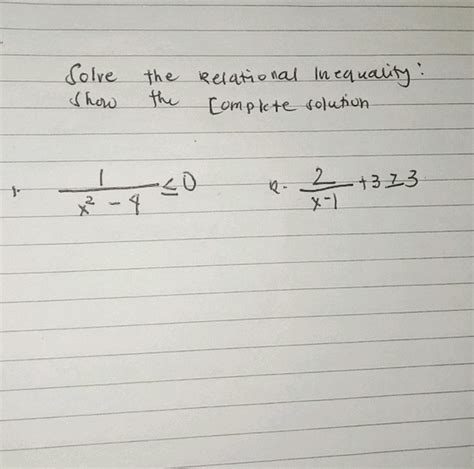 Solve the Relational Inequality:
Show the Complete solution
1. 1/(x² - 4) ≤ 0
2. 2/(x-1) + 3 ≥ 3